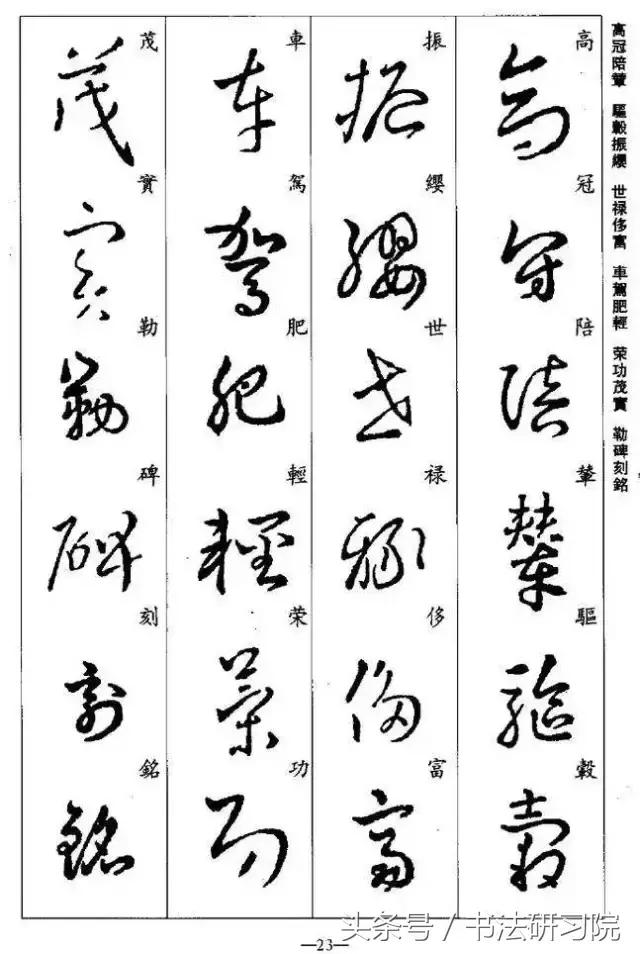 高冠陪輦 驅轂振纓 世禄侈富 車駕肥輕 荣功茂實 勒碑刻銘
高冠陪輦驅轂
振纓世禄侈富
車駕肥輕荣功
茂實勒碑刻銘
—23—
头条号 / 书法研习院